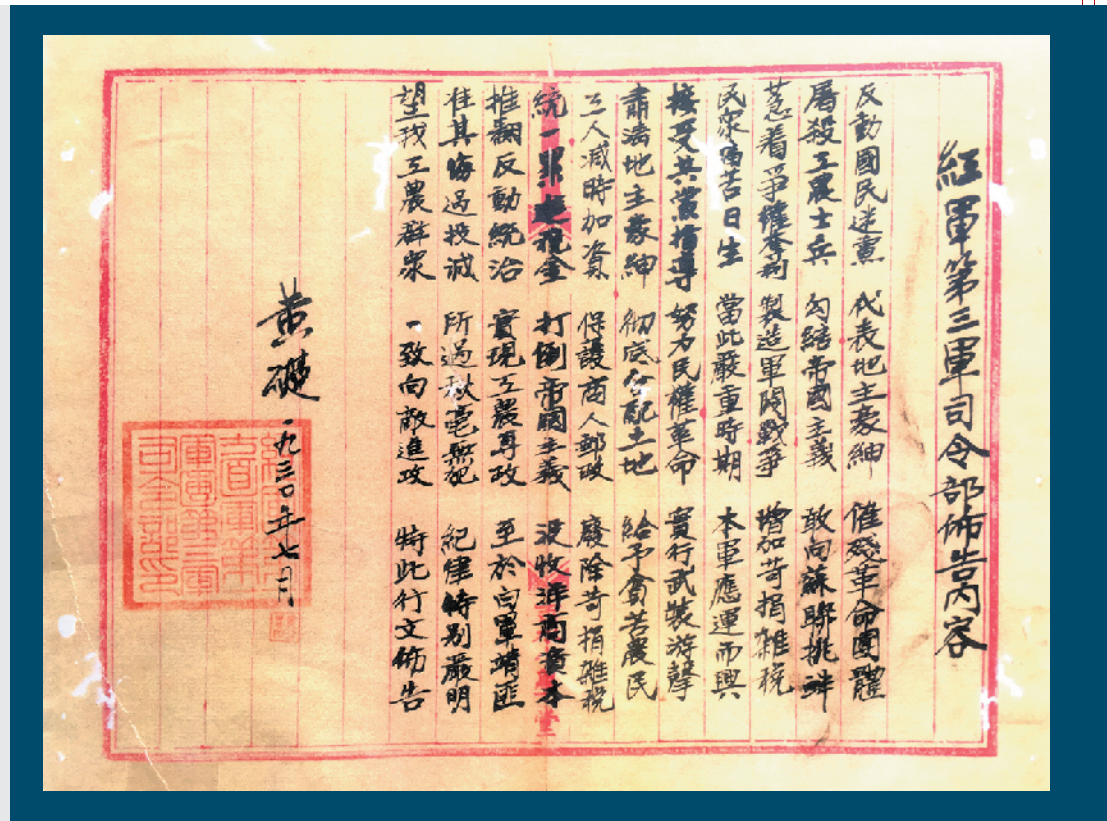 紅軍第三軍司令部佈告內容
反動國民迷黨 代表地主豪紳 催殘革命團體
屠殺工農士兵 勾結帝國主義 敢向蘇聯挑衅
惹着爭權奪利 製造軍閥戰爭 增加苛捐雜稅
民眾痛苦日生 當此嚴重時期 本軍應運而興
接受共黨指導 努力民權革命 實行武裝游擊
肅清地主豪紳 彻底分配土地 給予貧苦農民
工人减時加資 保護商人郵政 廢除苛捐雜稅
統一累進税金 打倒帝國主義 沒收洋商資本
推翻反動統治 實現工農專政 至於白軍靖匪
准其悔過投減 所過秋毫無犯 紀律特别嚴明
望我工農群衆 一致向敵進攻 特此行文佈告
黄礎
一九三〇年七月